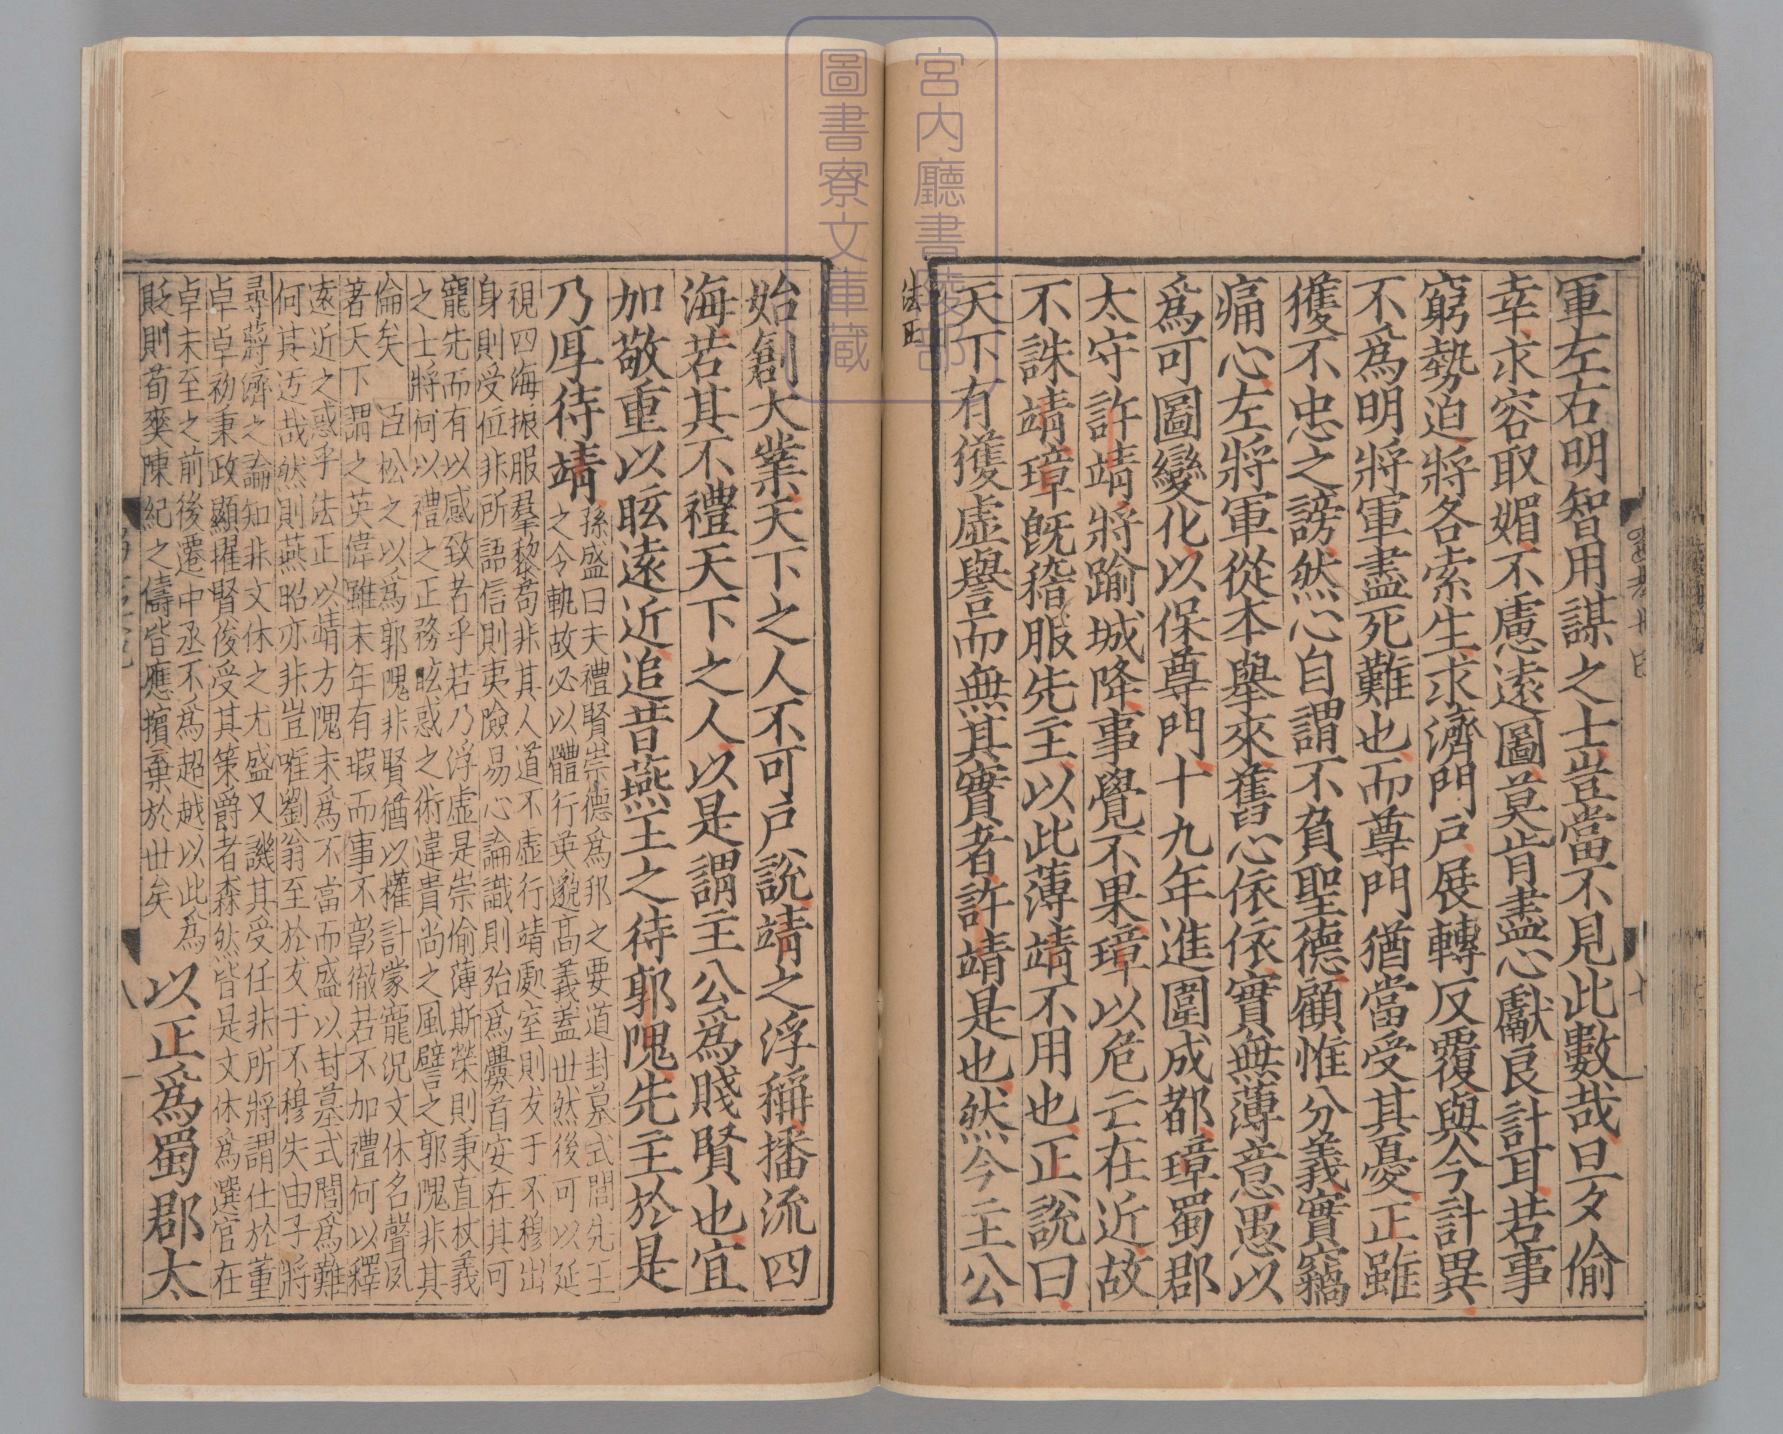 宮內廳書陵部
圖書寮文庫藏
軍左右明智用謀之士豈當不見此數哉旦夕偷
幸求容取媚不慮遠圖莫肯盡心獻良計耳若事
窮勢迫將各索生求濟門戶展轉反覆與今計異
不為明將軍盡死難也而尊門猶當受其憂正雖
獲不忠之謗然心自謂不負聖德顧惟分義實竊
痛心左將軍從本舉來舊心依依實無薄意愚以
為可圖變化以保尊門十九年進圍成都璋蜀郡
太守許靖將踰城降事覺不果璋以危亡在近故
不誅靖璋既稽服先主以此薄靖不用也正說曰
天下有獲虛譽而無其實者許靖是也然今主公
法正
始創大業天下之人不可戶說靖之浮稱播流四
海若其不禮天下之人以是謂主公為賤賢也宜
加敬重以眩遠近追昔燕王之待郭隗先主於是
乃厚待靖
孫盛曰夫禮賢崇德為邦之要道封墓式閭先王
之令軌故必以體行英邈高義蓋世然後可以延
視四海振服羣黎苟非其人道不虛行靖處室則友于不穆出
身則受位非所語信則夷險易心論識則殆為釁首安在其可
寵先而有以感致者乎若乃浮虛是崇偷薄斯榮則秉直杖義
之士將何以禮之正務眩惑之術違貴尚之風譬之郭隗非其
倫矣 臣松之以為郭隗非賢猶以權計蒙寵況文休名聲夙
著天下謂之英偉雖末年有瑕而事不彰徹若不加禮何以釋
遠近之惑乎法正以靖方隗未為不當而盛以封墓式閭為難
何其迂哉然則燕昭亦非豈唯劉翁至於友于不穆失由子將
尋蔣濟之論知非文休之尤盛又譏其受任非所將謂仕於董
卓卓初秉政顯擢賢俊受其策爵者森然皆是文休為選官在
卓未至之前後遷中丞不為超越以此為
貶則荀爽陳紀之儔皆應擯棄於世矣
以正為蜀郡太